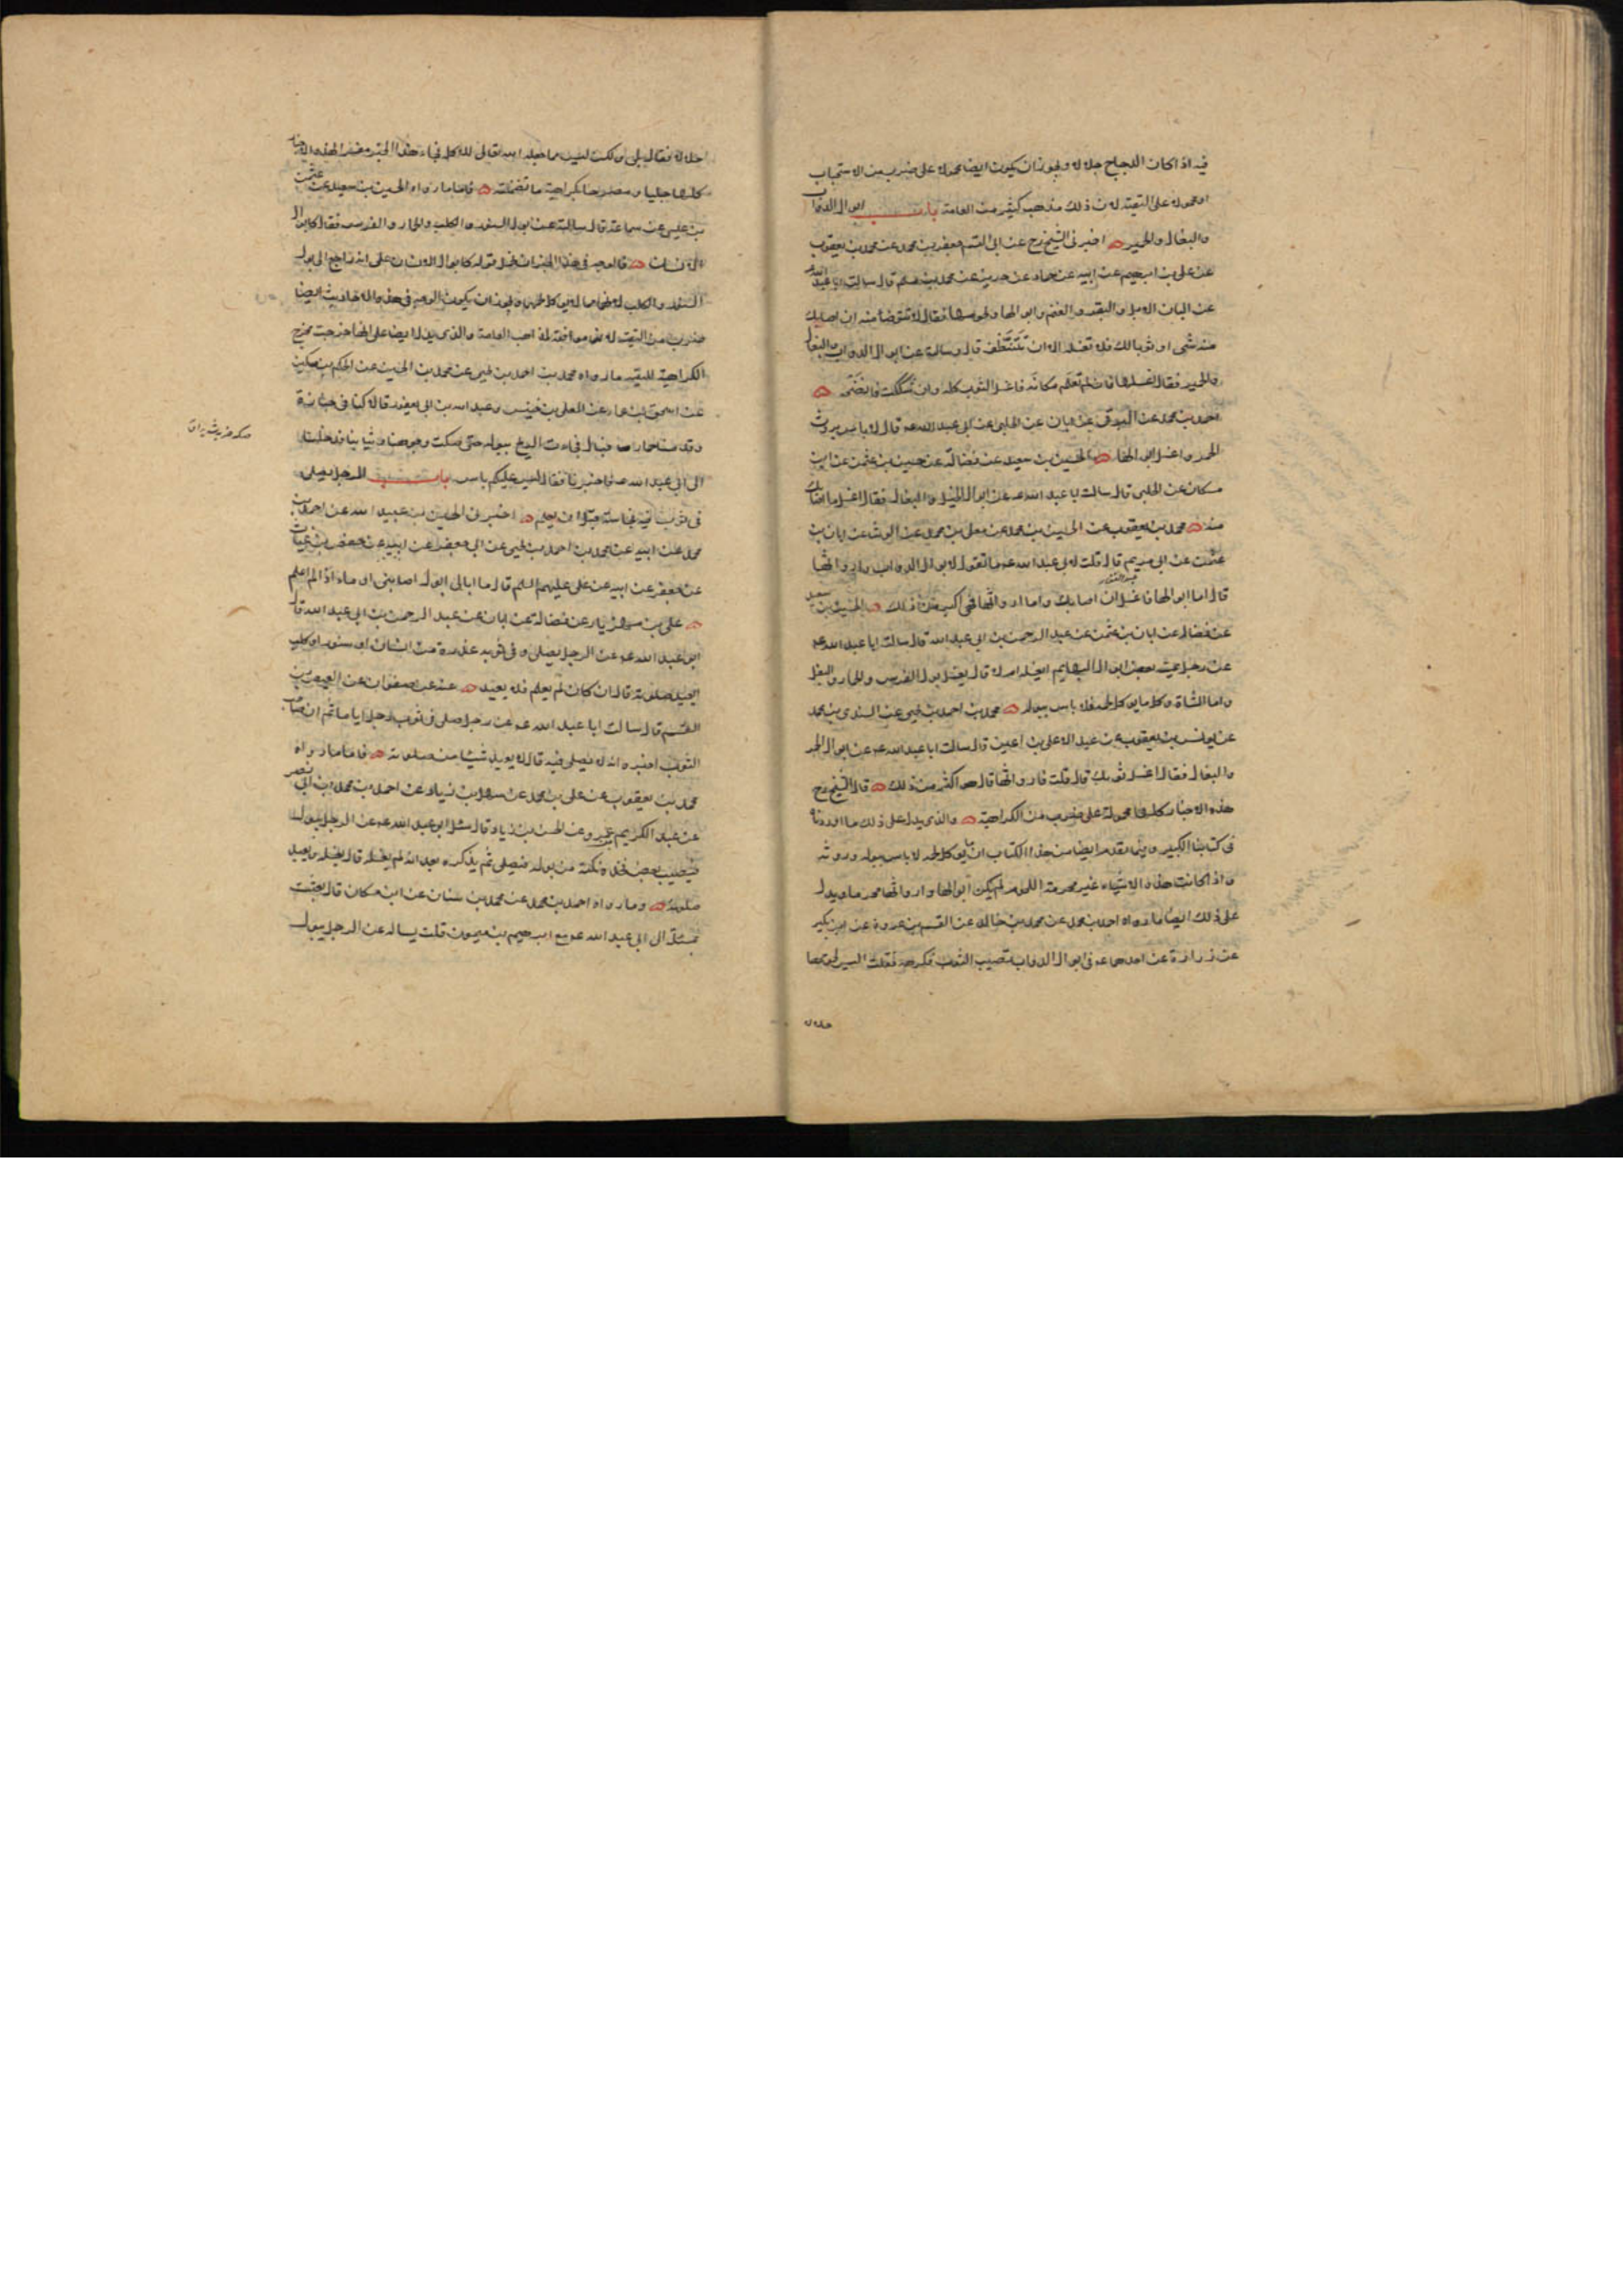 فيه اذا كان الدجاج جلالا ويجوز ان يكون ايضا محمولا على ضرب من الاستحباب
او محمولا على التقية لان ذلك مذهب كثير من العامة باب ابوال الدواب
والبغال والحمير اخبرنى الشيخ رح عن ابى القسم جعفر بن محمد عن محمد بن يعقوب
عن على بن ابرهيم عن ابيه عن حماد عن حريز عن محمد بن مسلم قال سالت ابا عبد الله
عن البان الابل والبقر والغنم وابوالها ولحومها فقال لا تتوضا منه ان اصابك
منه شى او ثوبا لك فلا تغسله الا ان تتنظف قال وسالته عن ابوال الدواب والبغال
والحمير فقال اغسلها فان لم تعلم مكانه فاغسل الثوب كله وان شككت فانضحه
احمد بن محمد عن البرقى عن ابان عن الحلبى عن ابى عبد الله ع قال لا باس بروث
الحمر واغسل ابوالها الحسين بن سعيد عن فضالة عن حسين بن عثمن عن ابن
مسكان عن الحلبى قال سالت ابا عبد الله ع عن ابوال الخيل والبغال فقال اغسل ما اصابك
منه محمد بن يعقوب عن الحسين بن محمد عن معلى بن محمد عن الوشا عن ابان بن
عثمن عن ابى مريم قال قلت لابى عبد الله ع ما تقول لابوال الدواب وارواثها
قال اما ابوالها فاغسل ان اصابك واما ارواثها فهى اكثر من ذلك الحسين بن سعيد
عن فضالة عن ابان بن عثمن عن عبد الرحمن بن ابى عبد الله قال سالت ابا عبد الله ع
عن رجل يمسه بعض ابوال البهايم ايغسله ام لا قال يغسل بول الفرس والحمار والبغل
واما الشاة وكل ما يوكل لحمه فلا باس ببوله محمد بن احمد بن يحيى عن السندى بن محمد
عن يونس بن يعقوب عن عبد الاعلى بن اعين قال سالت ابا عبد الله ع عن ابوال الحمر
والبغال فقال اغسل ثوبك قال قلت فارواثها قال هو اكثر من ذلك قال الشيخ رح
هذه الاخبار كلها محمولة على ضرب من الكراهية والذى يدل على ذلك ما اوردناه
فى كتابنا الكبير وفيما تقدم ايضا من هذا الكتاب ان ما يوكل لحمه لا باس ببوله وروثه
واذا كانت هذه الاشياء غير محرمة اللحوم لم يكن ابوالها وارواثها محرما ويدل
على ذلك ايضا ما رواه احمد بن محمد عن محمد بن خالد عن القسم بن عروة عن ابن بكير
عن زرارة عن احدهما ع فى ابوال الدواب تصيب الثوب فكرهه فقلت اليس لحومها
حلالا
حلالا فقال بلى ولكن ليس مما جعله الله تعالى للاكل فجاء هذا الخبر مفسرا لهذه الاخبار
كلها جليا ومصرحا بكراهية ما تضمنته فاما ما رواه الحسين بن سعيد عن عثمن
بن عيسى عن سماعة قال سالته عن بول السنور والكلب والحمار والفرس فقال كابوال
الانسان فالوجه فى هذا الخبر ان نحمل قوله كابوال الانسان على انه راجع الى بول
السنور والكلب لانهما مما لا يوكل لحمهما ويجوز ان يكون الوجه فى هذه الاحاديث ايضا
ضرب من التقية لانها موافقة لمذاهب العامة والذى يدل ايضا على انها خرجت مخرج
الكراهية للتقية ما رواه محمد بن احمد بن يحيى عن محمد بن الحسين عن الحكم بن مسكين
عن اسحق بن عمار عن المعلى بن خنيس وعبد الله بن ابى يعفور قال كنا فى جنازة
وقدمنا حمار فبال فجاءت الريح ببوله حتى صكت وجوهنا وثيابنا فدخلنا
الى ابى عبد الله ع فاخبرناه فقال ليس عليكم باس باب الرجل يصلى
فى ثوب فيه نجاسة قبل ان يعلم اخبرنى الحسين بن عبيد الله عن احمد بن
محمد عن ابيه عن محمد بن احمد بن يحيى عن ابى جعفر عن ابيه عن حفص بن غياث
عن جعفر عن ابيه عن على عليهم السلم قال ما ابالى ابول اصابنى او ماء اذا لم اعلم
على بن مهزيار عن فضالة عن ابان عن عبد الرحمن بن ابى عبد الله قال
ابى عبد الله ع عن الرجل يصلى وفى ثوبه عذرة من انسان او سنور او كلب
ايعيد صلوته قال ان كان لم يعلم فلا يعيد عنه عن صفوان عن العيص بن
القسم قال سالت ابا عبد الله ع عن رجل صلى فى ثوب رجل اياما ثم ان صاحب
الثوب اخبره انه لا يصلى فيه قال لا يعيد شيئا من صلوته فاما ما رواه
محمد بن يعقوب عن على بن محمد عن سهل بن زياد عن احمد بن محمد بن ابى نصر
عن عبد الكريم بن عمرو عن الحسن بن زياد قال سئل ابو عبد الله ع عن الرجل يبول
فيصيب بعض فخذه نكتة من بوله فيصلى ثم يذكر بعد انه لم يغسله قال يغسله ويعيد
صلوته وما رواه احمد بن محمد عن محمد بن سنان عن ابن مسكان قال بعثت
بمسئلة الى ابى عبد الله ع مع ابرهيم بن ميمون قلت يساله عن الرجل يبول